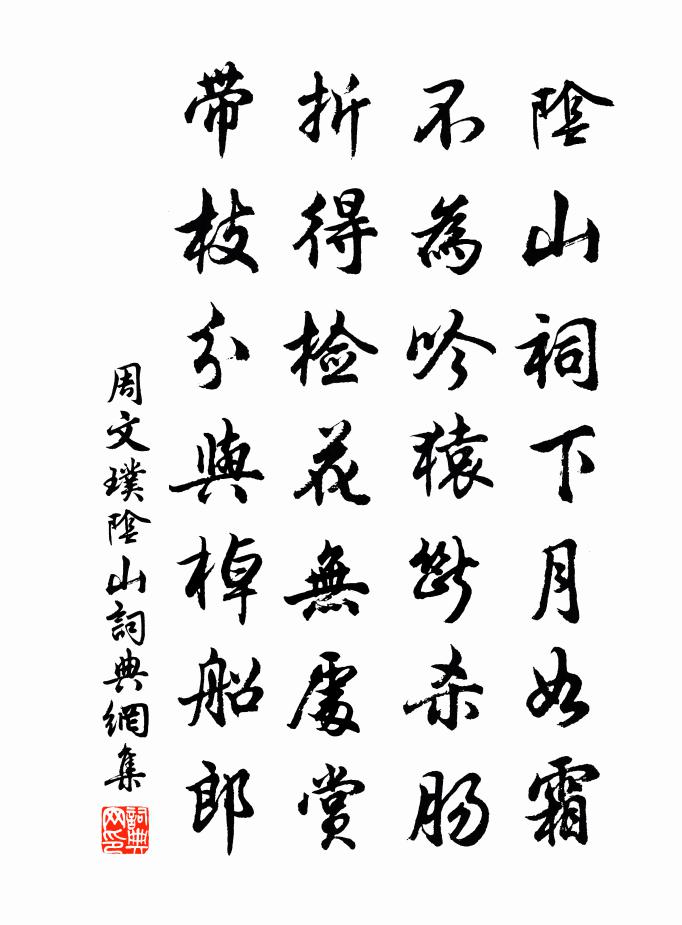 陰山祠下月如霜
不為吟猿斷杀肠
折得検花無處賞
带枝分與棹船郎
周文璞陰山詞典網集
詞典网印